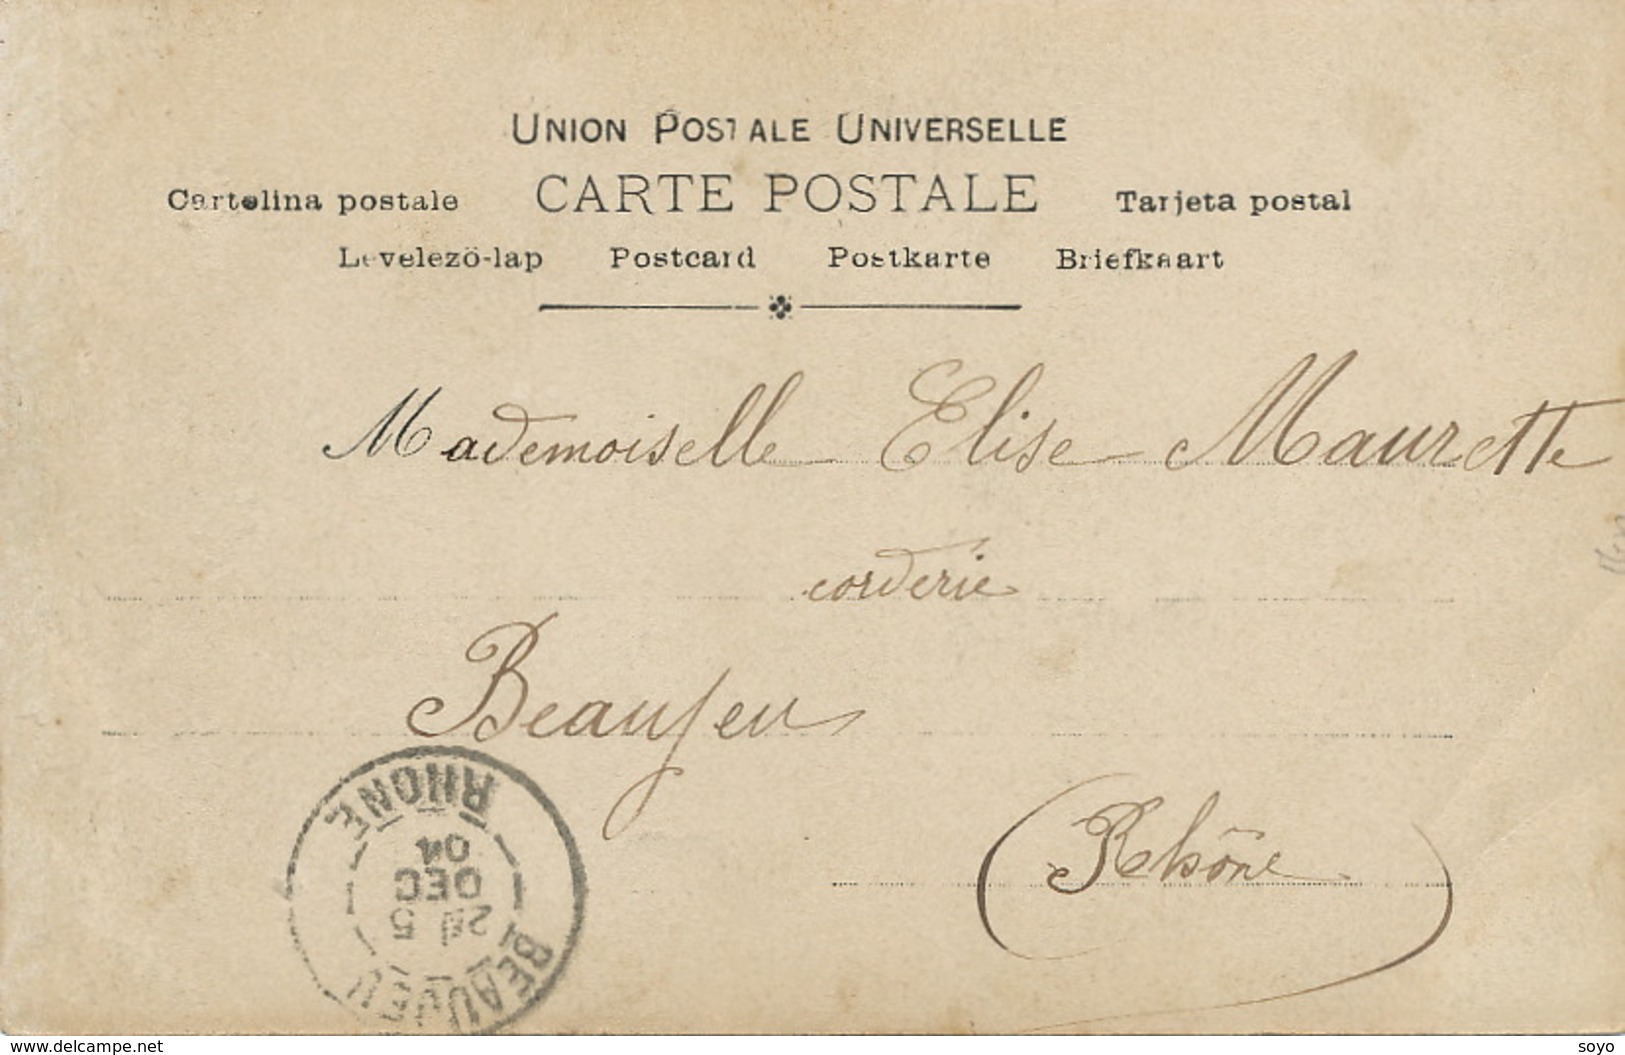 UNION POSTALE UNIVERSELLE
Cartolina postale CARTE POSTALE Tarjeta postal
Levelezö-lap Postcard Postkarte Briefkaart
Mademoiselle Elise Maurette
corderie
Beaujeu
(Rhône)
BEAUJEU
5
DEC
04
RHONE
www.delcampe.net
soyo